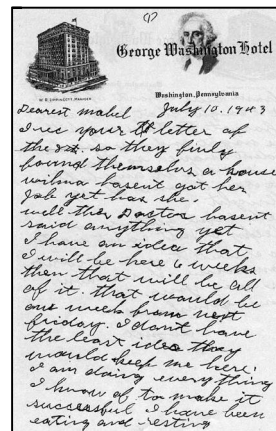 George Washington Hotel
Washington, Pennsylvania
July 10. 1943
Dearest Mabel
I rec your letter of
the 8st. so they finly
found themselves a house
wilma hasent got her
Job yet has she.
well the Doctor hasent
said anything yet
I have an idea that
I will be here 6 weeks
then that will be all
of it. that would be
one week from next
friday. I dont have
the least idea they
would keep me here.
I am doing everything
I know of to make it
successful I have been
eating and resting